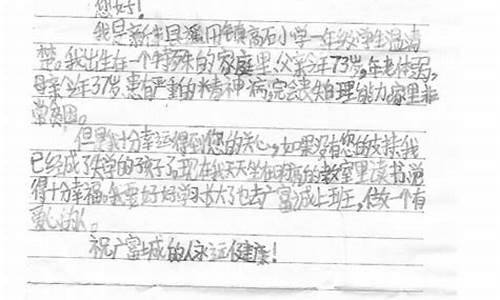 您好!
我是新田县濂田镇高石小学一年级学生温涛
楚。我出生在一个特殊的家庭里,父亲今年73岁,年老体弱,
母亲今年37岁,患有严重的精神病,完会丧失自理能力,家里非
常贫困。
但是我十分幸运得到您的关心,如果没有您的支持,我
已经成了失学的孩子了,现在我天天坐在明亮的教室里读书,觉
得十分幸福。我要好好学习,长大了也去广富城上班,做一个有
爱心的人。
祝广富城的人永远健康!